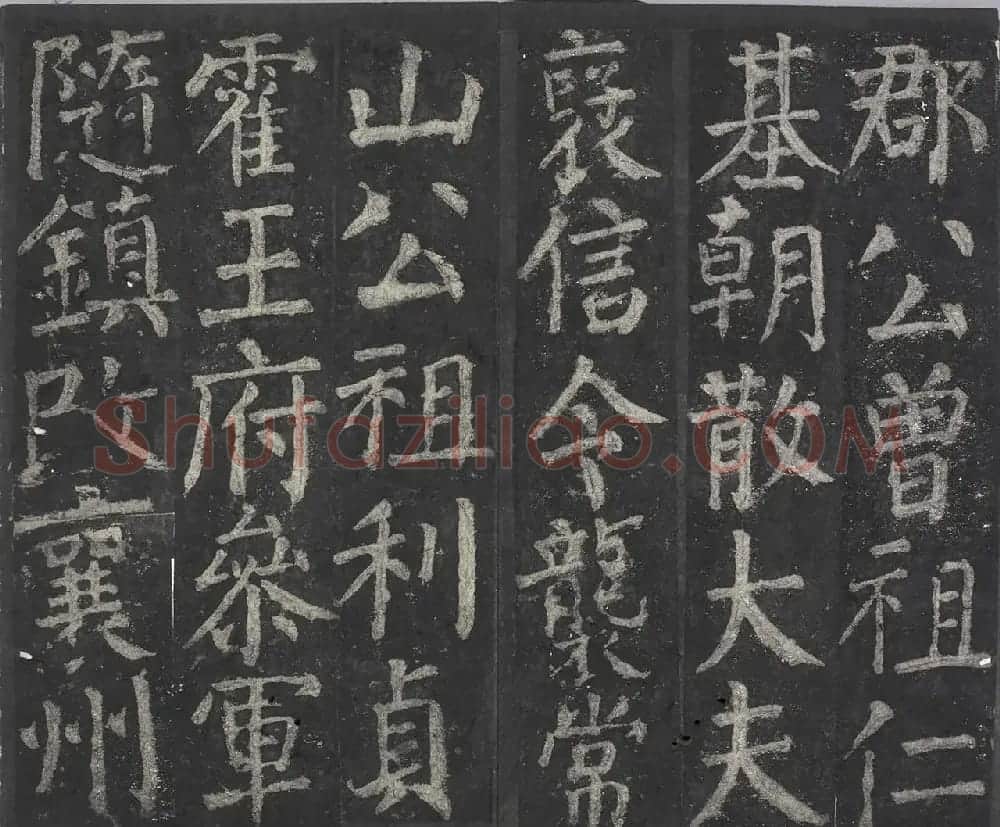 郡公曾祖仁
基朝散大夫
襃信令襲常
山公祖利貞
霍王府參軍
隨鎮改襄州
Shufaziliao.COM